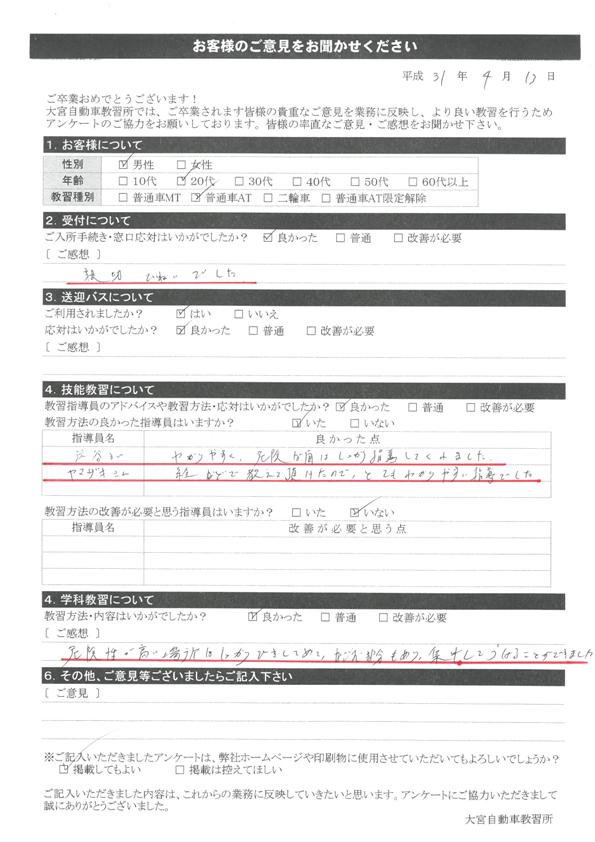 お客様のご意見をお聞かせください
平成 31 年 4 月 13 日
ご卒業おめでとうございます！
大宮自動車教習所では、ご卒業されます皆様の貴重なご意見を業務に反映し、より良い教習を行うため
アンケートのご協力をお願いしております。皆様の率直なご意見・ご感想をお聞かせ下さい。
1. お客様について
性別 ☑男性 □女性
年齢 □10代 ☑20代 □30代 □40代 □50代 □60代以上
教習種別 □普通車MT ☑普通車AT □二輪車 □普通車AT限定解除
2. 受付について
ご入所手続き・窓口応対はいかがでしたか？ ☑良かった □普通 □改善が必要
[ ご感想 ]
親切 ていねいでした
3. 送迎バスについて
ご利用されましたか？ ☑はい □いいえ
応対はいかがでしたか？ ☑良かった □普通 □改善が必要
[ ご感想 ]
4. 技能教習について
教習指導員のアドバイスや教習方法・応対はいかがでしたか？ ☑良かった □普通 □改善が必要
教習方法の良かった指導員はいますか？ ☑いた □いない
指導員名 良かった点
わかりやすく、危険な所はしっかり指導してくれました。
ヤマザキさん 絵などで教えて頂けたので、とてもわかりやすい指導でした
教習方法の改善が必要と思う指導員はいますか？ □いた ☑いない
指導員名 改善が必要と思う点
4. 学科教習について
教習方法・内容はいかがでしたか？ ☑良かった □普通 □改善が必要
[ ご感想 ]
危険性が高い場所はしっかり 集中してうけることができました
6. その他、ご意見等ございましたらご記入下さい
[ ご意見 ]
※ご記入いただきましたアンケートは、弊社ホームページや印刷物に使用させていただいてもよろしいでしょうか？
☑掲載してもよい □掲載は控えてほしい
ご記入いただきました内容は、これからの業務に反映していきたいと思います。アンケートにご協力いただきまして
誠にありがとうございました。
大宮自動車教習所